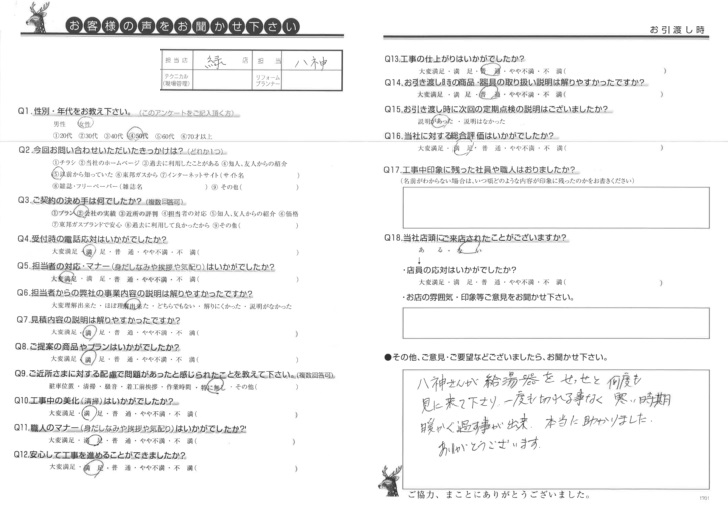 お客様の声をお聞かせ下さい
担当店 緑 店 担当 八神
テクニカル(現場管理) リフォームプランナー
Q1.性別・年代をお教え下さい。(このアンケートをご記入頂く方)
男性 女性
①20代 ②30代 ③40代 ④50代 ⑤60代 ⑥70才以上
Q2.今回お問い合わせいただいたきっかけは?(どれか1つ)
①チラシ ②当社のホームページ ③過去に利用したことがある ④知人、友人からの紹介
⑤以前から知っていた ⑥東邦ガスから ⑦インターネットサイト(サイト名 )
⑧雑誌・フリーペーパー(雑誌名 ) ⑨その他( )
Q3.ご契約の決め手は何でしたか?(複数回答可)
①プラン ②会社の実績 ③近所の評判 ④担当者の対応 ⑤知人、友人からの紹介 ⑥価格
⑦東邦ガスブランドで安心 ⑧過去に利用して良かったから ⑨その他( )
Q4.受付時の電話応対はいかがでしたか?
大変満足・満 足・普 通・やや不満・不 満( )
Q5.担当者の対応・マナー(身だしなみや挨拶や気配り)はいかがでしたか?
大変満足・満 足・普 通・やや不満・不 満( )
Q6.担当者からの弊社の事業内容の説明は解りやすかったですか?
大変理解出来た・ほぼ理解出来た・どちらでもない・解りにくかった・説明がなかった
Q7.見積内容の説明は解りやすかったですか?
大変満足・満 足・普 通・やや不満・不 満( )
Q8.ご提案の商品やプランはいかがでしたか?
大変満足・満 足・普 通・やや不満・不 満( )
Q9.ご近所さまに対する配慮で問題があったと感じられたことを教えて下さい。(複数回答可)
駐車位置・清掃・騒音・着工前挨拶・作業時間・特に無し・その他( )
Q10.工事中の美化(清掃)はいかがでしたか?
大変満足・満 足・普 通・やや不満・不 満( )
Q11.職人のマナー(身だしなみや挨拶や気配り)はいかがでしたか?
大変満足・満 足・普 通・やや不満・不 満( )
Q12.安心して工事を進めることができましたか?
大変満足・満 足・普 通・やや不満・不 満( )
お引渡し時
Q13.工事の仕上がりはいかがでしたか?
大変満足・満 足・普 通・やや不満・不 満( )
Q14.お引き渡し時の商品・器具の取り扱い説明は解りやすかったですか?
大変満足・満 足・普 通・やや不満・不 満( )
Q15.お引き渡し時に次回の定期点検の説明はございましたか?
説明があった・説明はなかった
Q16.当社に対する総合評価はいかがでしたか?
大変満足・満 足・普 通・やや不満・不 満( )
Q17.工事中印象に残った社員や職人はおりましたか?
(名前がわからない場合は、いつ頃どのような内容が印象に残ったのかをお書きください)
Q18.当社店頭にご来店されたことがございますか?
ある・ない
↓
・店員の応対はいかがでしたか?
大変満足・満 足・普 通・やや不満・不 満( )
・お店の雰囲気・印象等ご意見をお聞かせ下さい。
●その他、ご意見・ご要望などございましたら、お聞かせ下さい。
八神さんが給湯器をせっせと何度も
見に来て下さり、一度も切れる事なく寒い時期
暖かく過す事が出来、本当に助かりました。
ありがとうございます。
ご協力、まことにありがとうございました。